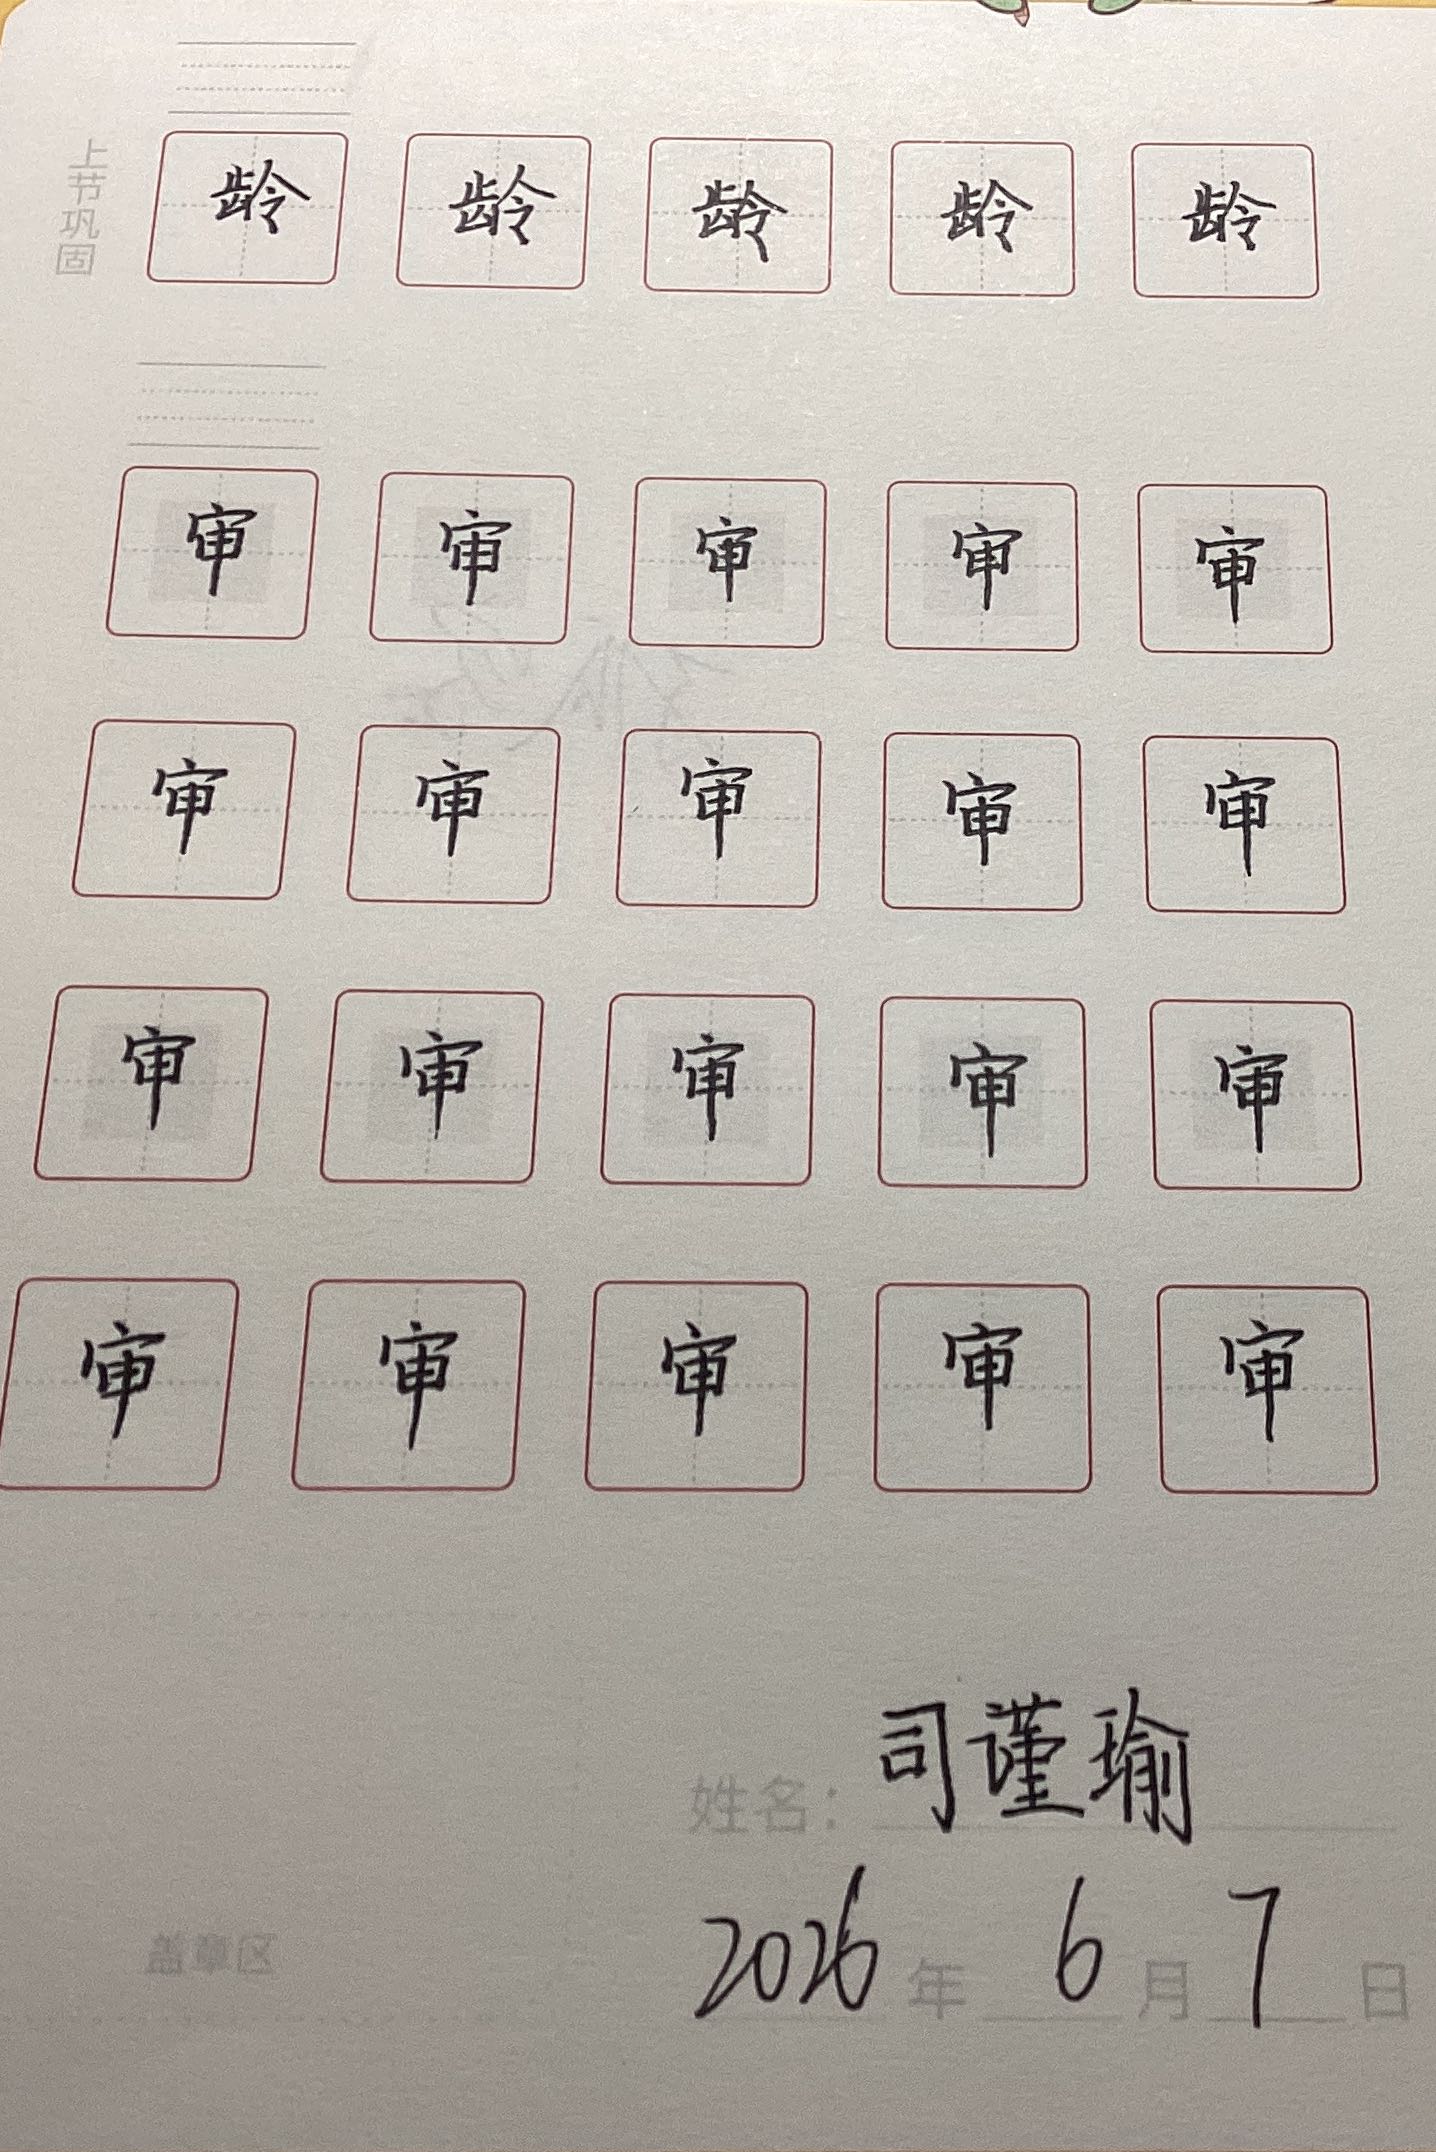 上节巩固
龄 龄 龄 龄 龄
审 审 审 审 审
审 审 审 审 审
审 审 审 审 审
审 审 审 审 审
姓名：司谨瑜
2026年6月7日
盖章区